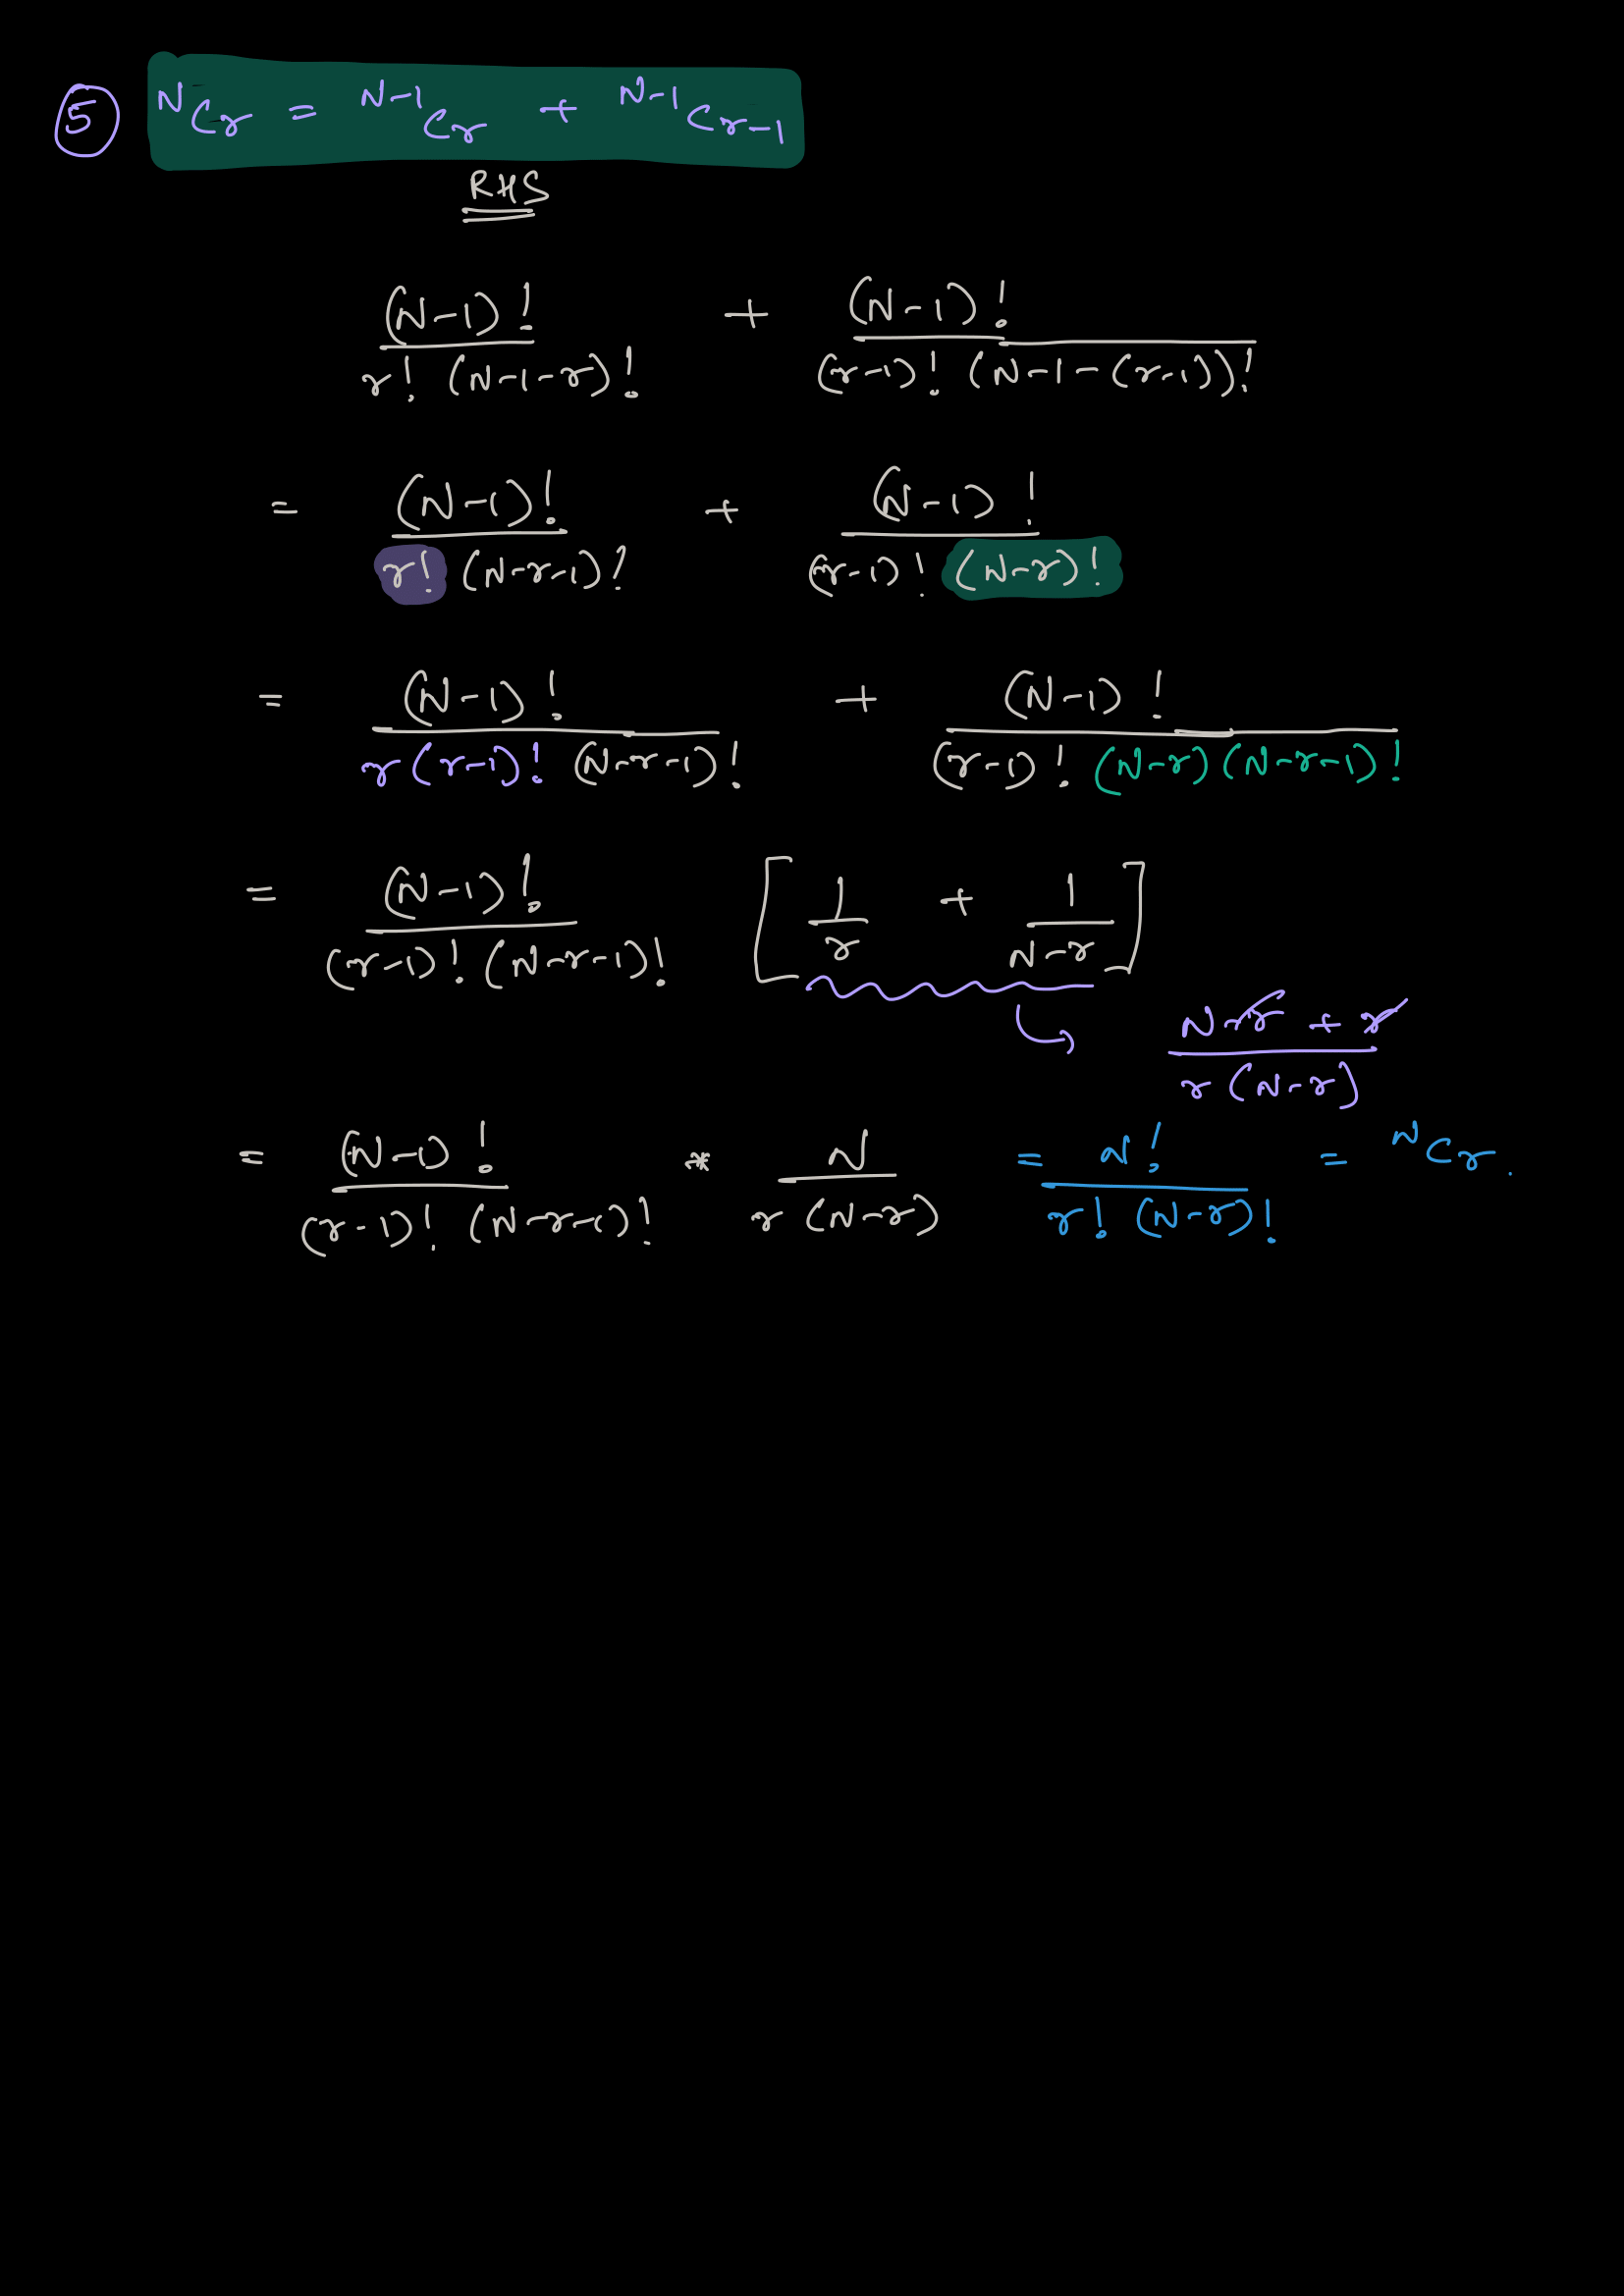 ⑤ ᴺCr = ᴺ⁻¹Cr + ᴺ⁻¹Cr-1
RHS
(N-1)! / r! (N-1-r)! + (N-1)! / (r-1)! (N-1-(r-1))!
= (N-1)! / r! (N-r-1)! + (N-1)! / (r-1)! (N-r)!
= (N-1)! / r(r-1)! (N-r-1)! + (N-1)! / (r-1)! (N-r)(N-r-1)!
= (N-1)! / (r-1)! (N-r-1)! [1/r + 1/N-r]
N-r + r / r(N-r)
= (N-1)! / (r-1)! (N-r-1)! * N / r(N-r) = N! / r! (N-r)! = ᴺCr.